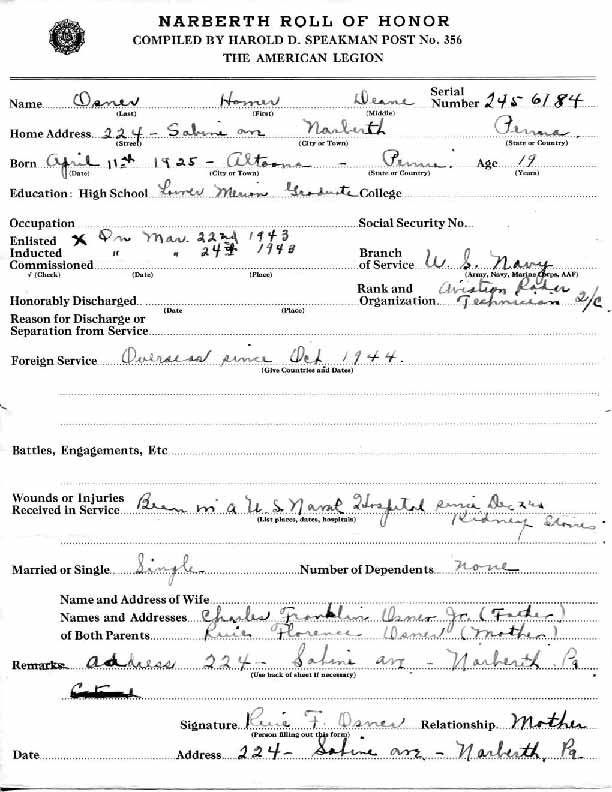 NARBERTH ROLL OF HONOR
COMPILED BY HAROLD D. SPEAKMAN POST No. 356
THE AMERICAN LEGION
Name Osner Homer Deane Serial Number 245 6184
(Last) (First) (Middle)
Home Address 224 - Sabine ave Narberth Penna.
(Street) (City or Town) (State or Country)
Born April 11th 1925 - Altoona - Penna. Age 19
(Date) (City or Town) (State or Country) (Years)
Education: High School Lower Merion Graduate College
Occupation Social Security No.
Enlisted X On Mar. 22nd 1943
Inducted " " 24th 1943 Branch
Commissioned of Service U. S. Navy
√ (Check) (Date) (Place) (Army, Navy, Marine Corps, AAF)
Rank and Aviation Radar
Honorably Discharged Organization Technician 2/C
(Date (Place)
Reason for Discharge or
Separation from Service
Foreign Service Overseas since Oct 1944.
(Give Countries and Dates)
Battles, Engagements, Etc
Wounds or Injuries
Received in Service Been in a U. S Naval Hospital since Dec
(List places, dates, hospitals) Kidney Stones
Married or Single Single Number of Dependents none
Name and Address of Wife
Names and Addresses Charles Franklin Osner Jr. (Father)
of Both Parents Florence Osner (Mother)
Remarks address 224 - Sabine ave - Narberth. Pa
(Use back of sheet if necessary)
Signature F. Osner Relationship Mother
(Person filling out this form)
Date Address 224 - Sabine ave - Narberth, Pa